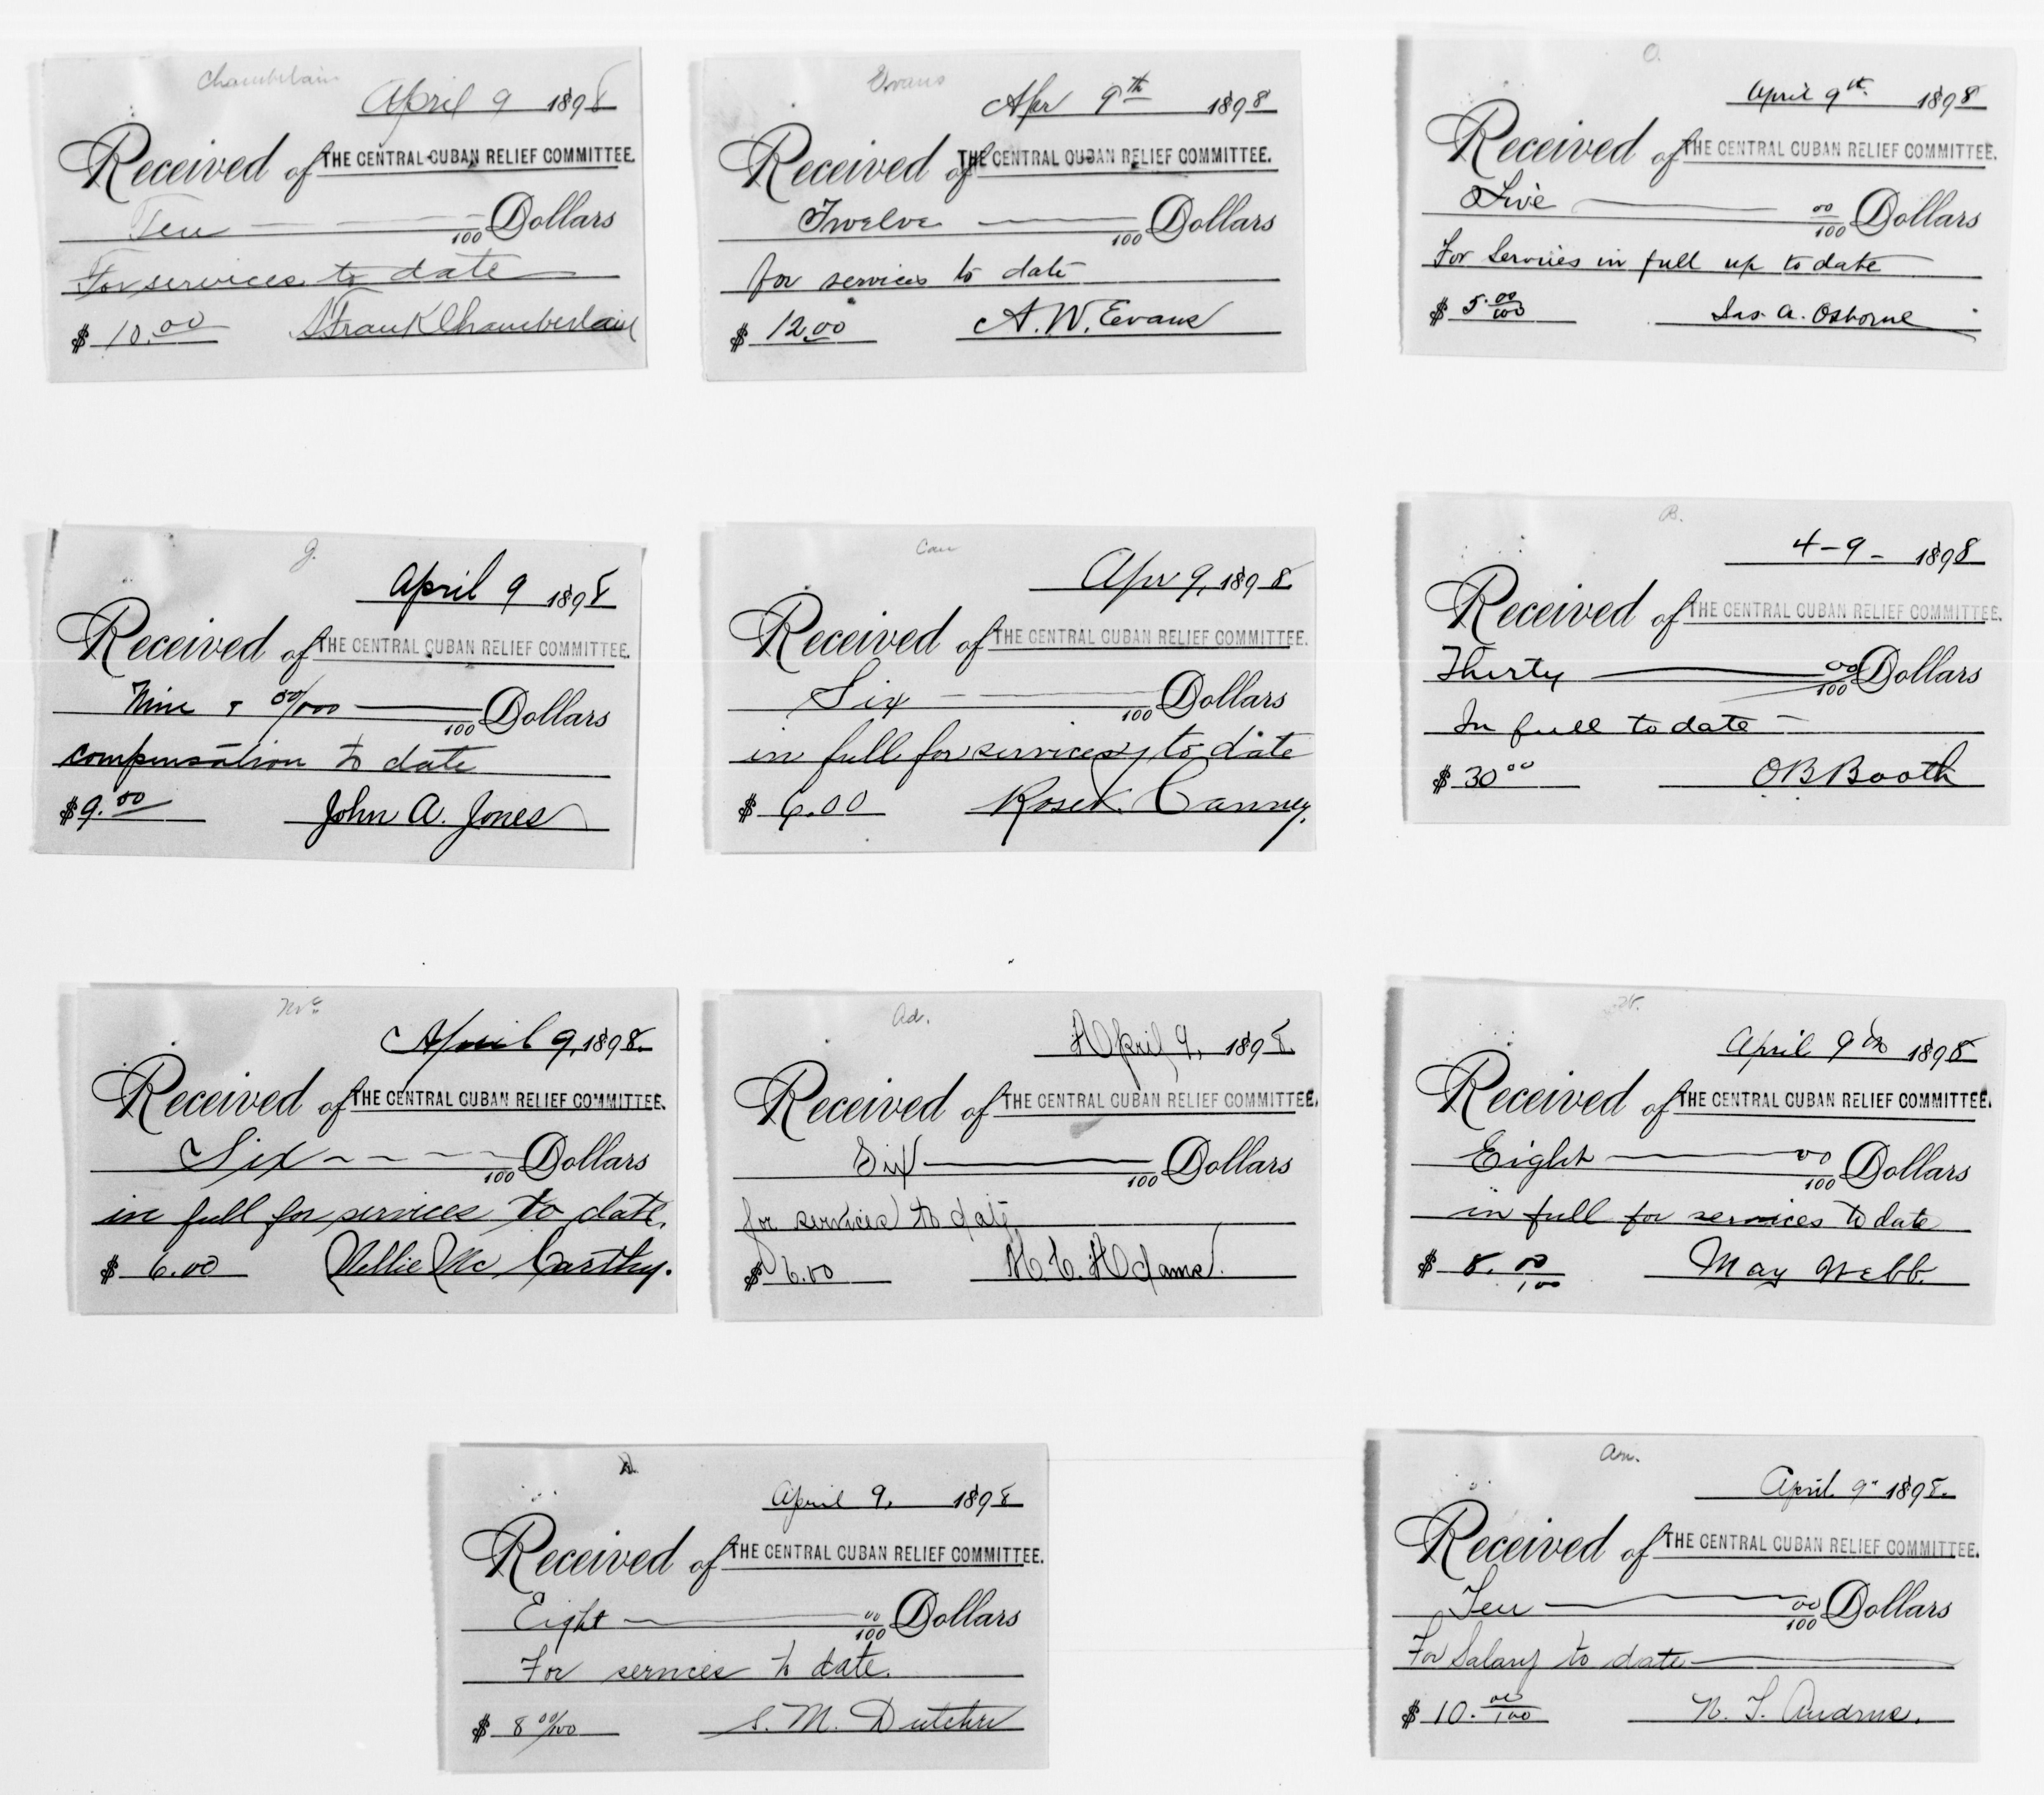 Chamberlain
April 9 1898
Received of THE CENTRAL CUBAN RELIEF COMMITTEE.
Ten — — — /100 Dollars
For services to date
$ 10.00 S Frank Chamberlain
Evans
Apr 9th 1898
Received of THE CENTRAL CUBAN RELIEF COMMITTEE.
Twelve — /100 Dollars
for services to date
$ 12.00 A. W. Evans
O.
April 9th 1898
Received of THE CENTRAL CUBAN RELIEF COMMITTEE.
Five — 00/100 Dollars
For Services in full up to date
$ 5.00/100 Jas. A. Osborne
J.
April 9 1898
Received of THE CENTRAL CUBAN RELIEF COMMITTEE.
Nine & 00/100 — /100 Dollars
compensation to date
$ 9.00 John A. Jones
Can
Apr 9, 1898
Received of THE CENTRAL CUBAN RELIEF COMMITTEE.
Six — /100 Dollars
in full for services to date
$ 6.00 Canney.
B.
4-9- 1898
Received of THE CENTRAL CUBAN RELIEF COMMITTEE.
Thirty — 00/100 Dollars
In full to date -
$ 30 00 O B Booth
Mc
April 9, 1898.
Received of THE CENTRAL CUBAN RELIEF COMMITTEE.
Six — — — /100 Dollars
in full for services to date.
$ 6.00 Nellie Mc Carthy.
Ad.
April 9, 1898
Received of THE CENTRAL CUBAN RELIEF COMMITTEE.
Six — /100 Dollars
for services to date
$ 6.00 Adams.
April 9th 1898
Received of THE CENTRAL CUBAN RELIEF COMMITTEE.
Eight — 00/100 Dollars
in full for services to date
$ 8.00/100 May Webb.
D.
April 9, 1898
Received of THE CENTRAL CUBAN RELIEF COMMITTEE.
Eight — 00/100 Dollars
For services to date.
$ 8 00/100 S. M. Dutcher
An.
April 9" 1898.
Received of THE CENTRAL CUBAN RELIEF COMMITTEE.
Ten — 00/100 Dollars
For Salary to date —
$ 10.00/100 N. T. Andrus.